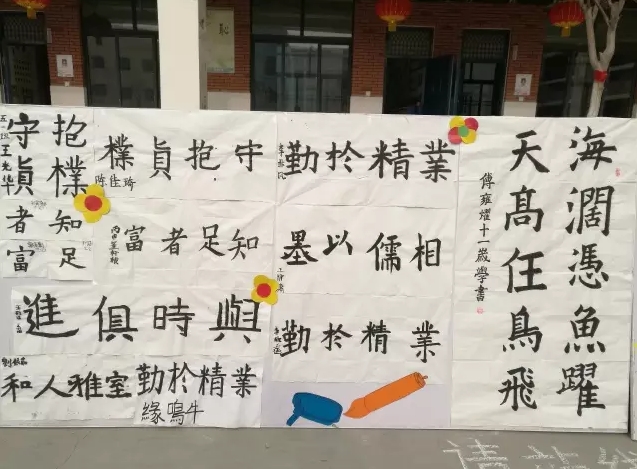 海濶憑魚躍
天高任鳥飛
傅雍燿十一歲學書
業精於勤
相儒以墨
業精於勤
守抱貞樸
陈佳琦
知足者富
抱樸
守貞
王光华
知足
者富
與時俱進
室雅人和
業精於勤
牛鳴緣